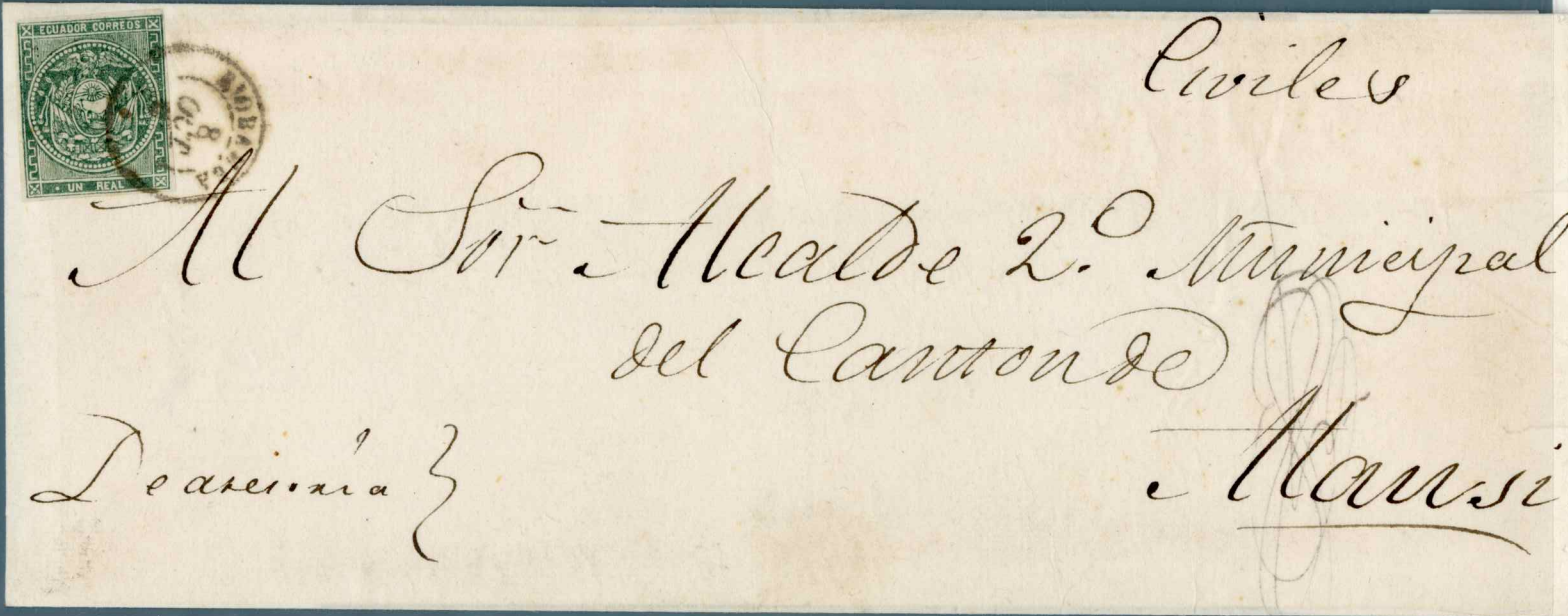 ECUADOR CORREOS
UN REAL
8
OCT
Civiles
Al Sor Alcalde 2.o Municipal
del Canton de
Alausi